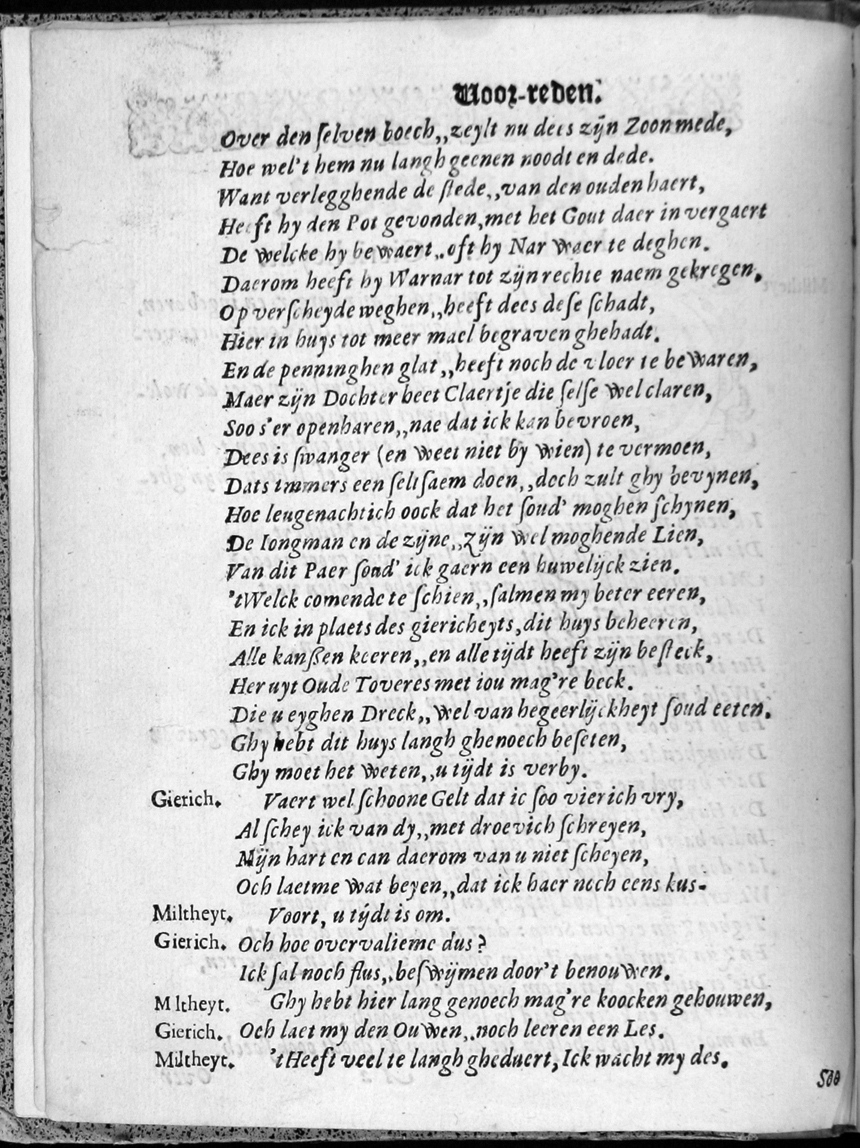 Voor-reden.
Over den ſelven boech,,zeylt nu dees zijn Zoon mede,
Hoe wel't hem nu langh geenen noodt en dede.
Want verlegghende de ſtede,,van den ouden haert,
Heeft hy den Pot gevonden,met het Gout daer in vergaert
De welcke hy bewaert,,oft hy Nar waer te deghen.
Daerom heeft hy Warnar tot zijn rechte naem gekregen,
Op verſcheyde weghen,,heeft dees deſe ſchadt,
Hier in huys tot meer mael begraven ghehadt.
En de penninghen glat,,heeft noch de vloer te bewaren,
Maer zijn Dochter heet Claertje die ſelſe wel claren,
Soo s'er openbaren,,nae dat ick kan bevroen,
Dees is ſwanger (en weet niet by wien) te vermoen,
Dats immers een ſeltſaem doen,,doch zult ghy bevynen,
Hoe leugenachtich oock dat het ſoud' moghen ſchynen,
De Iongman en de zijne,,zijn wel moghende Lien,
Van dit Paer ſoud' ick gaern een huwelijck zien.
'tWelck comende te ſchien,,ſalmen my beter eeren,
En ick in plaets des giericheyts,dit huys beheeren,
Alle kanßen keeren,,en alle tijdt heeft zijn beſteck,
Her uyt Oude Toveres met iou mag're beck.
Die u eyghen Dreck,,wel van begeerlijckheyt ſoud eeten.
Ghy hebt dit huys langh ghenoech beſeten,
Ghy moet het weten,,u tijdt is verby.
Gierich. Vaert wel ſchoone Gelt dat ic ſoo vierich vry,
Al ſchey ick van dy,,met droevich ſchreyen,
Mijn hart en can daerom van u niet ſcheyen,
Och laetme wat beyen,,dat ick haer noch eens kus-
Miltheyt. Voort, u tijdt is om.
Gierich. Och hoe overvalieme dus?
Ick ſal noch flus,,beſwijmen door't benouwen.
M ltheyt. Ghy hebt hier lang genoech mag're koocken gehouwen,
Gierich. Och laet my den Ouwen,,noch leeren een Les.
Miltheyt. 'tHeeft veel te langh gheduert, Ick wacht my des.